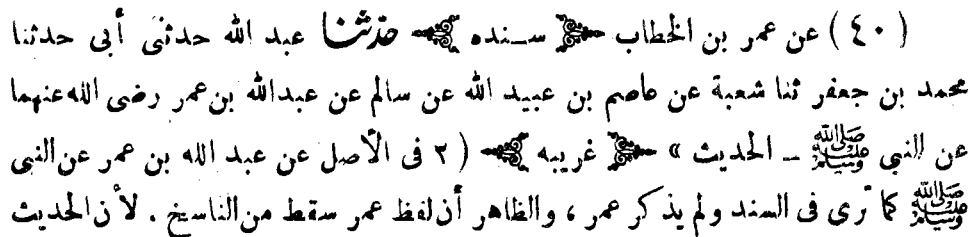 ( ٤٠ ) عن عمر بن الخطاب ﴿ ســنده ﴾ حدّثنا عبد الله حدثنى أبى حدثنا
محمد بن جعفر ثنا شعبة عن عاصم بن عبيد الله عن سالم عن عبدالله بن عمر رضى الله عنهما
عن النبي ﷺ ــ الحديث » ﴿ غريبه ﴾ ( ٢ فى الأصل عن عبد الله بن عمر عن النبى
ﷺ كما ترى فى السند ولم يذكر عمر ، والظاهر أن لفظ عمر سقط من الناسخ . لأن الحديث